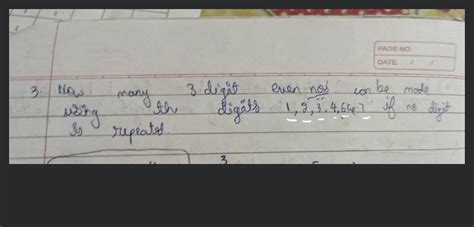 PAGE NO.
DATE: / /
3. How many 3 digit even nos can be made
using th digits 1, 2, 3, 4, 6 & 7 if no digit
is repeated.
3